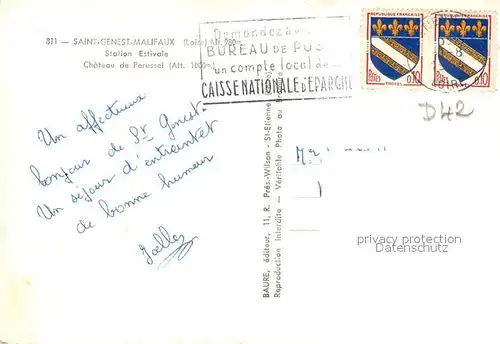 811 — SAINT-GENEST-MALIFAUX (Loire) Alt. 980 m
Station Estivale
Château de Perussel (Alt. 1000 m)
Demandez au
BUREAU DE POSTE
un compte local de
CAISSE NATIONALE D'ÉPARGNE
REPUBLIQUE FRANÇAISE
POSTES
TROYES
0,10
REPUBLIQUE FRANÇAISE
0,10
LOIRE
D42
Un affectueux
bonjour de St Genest.
Un séjour d'entraintet
de bonne humeur
Joelle
BAURE, éditeur, 11, R. Prés.-Wilson - St-Etienne
Reproduction Interdite — Véritable Photo au Bromure
privacy protection
©AKPOOL.DE